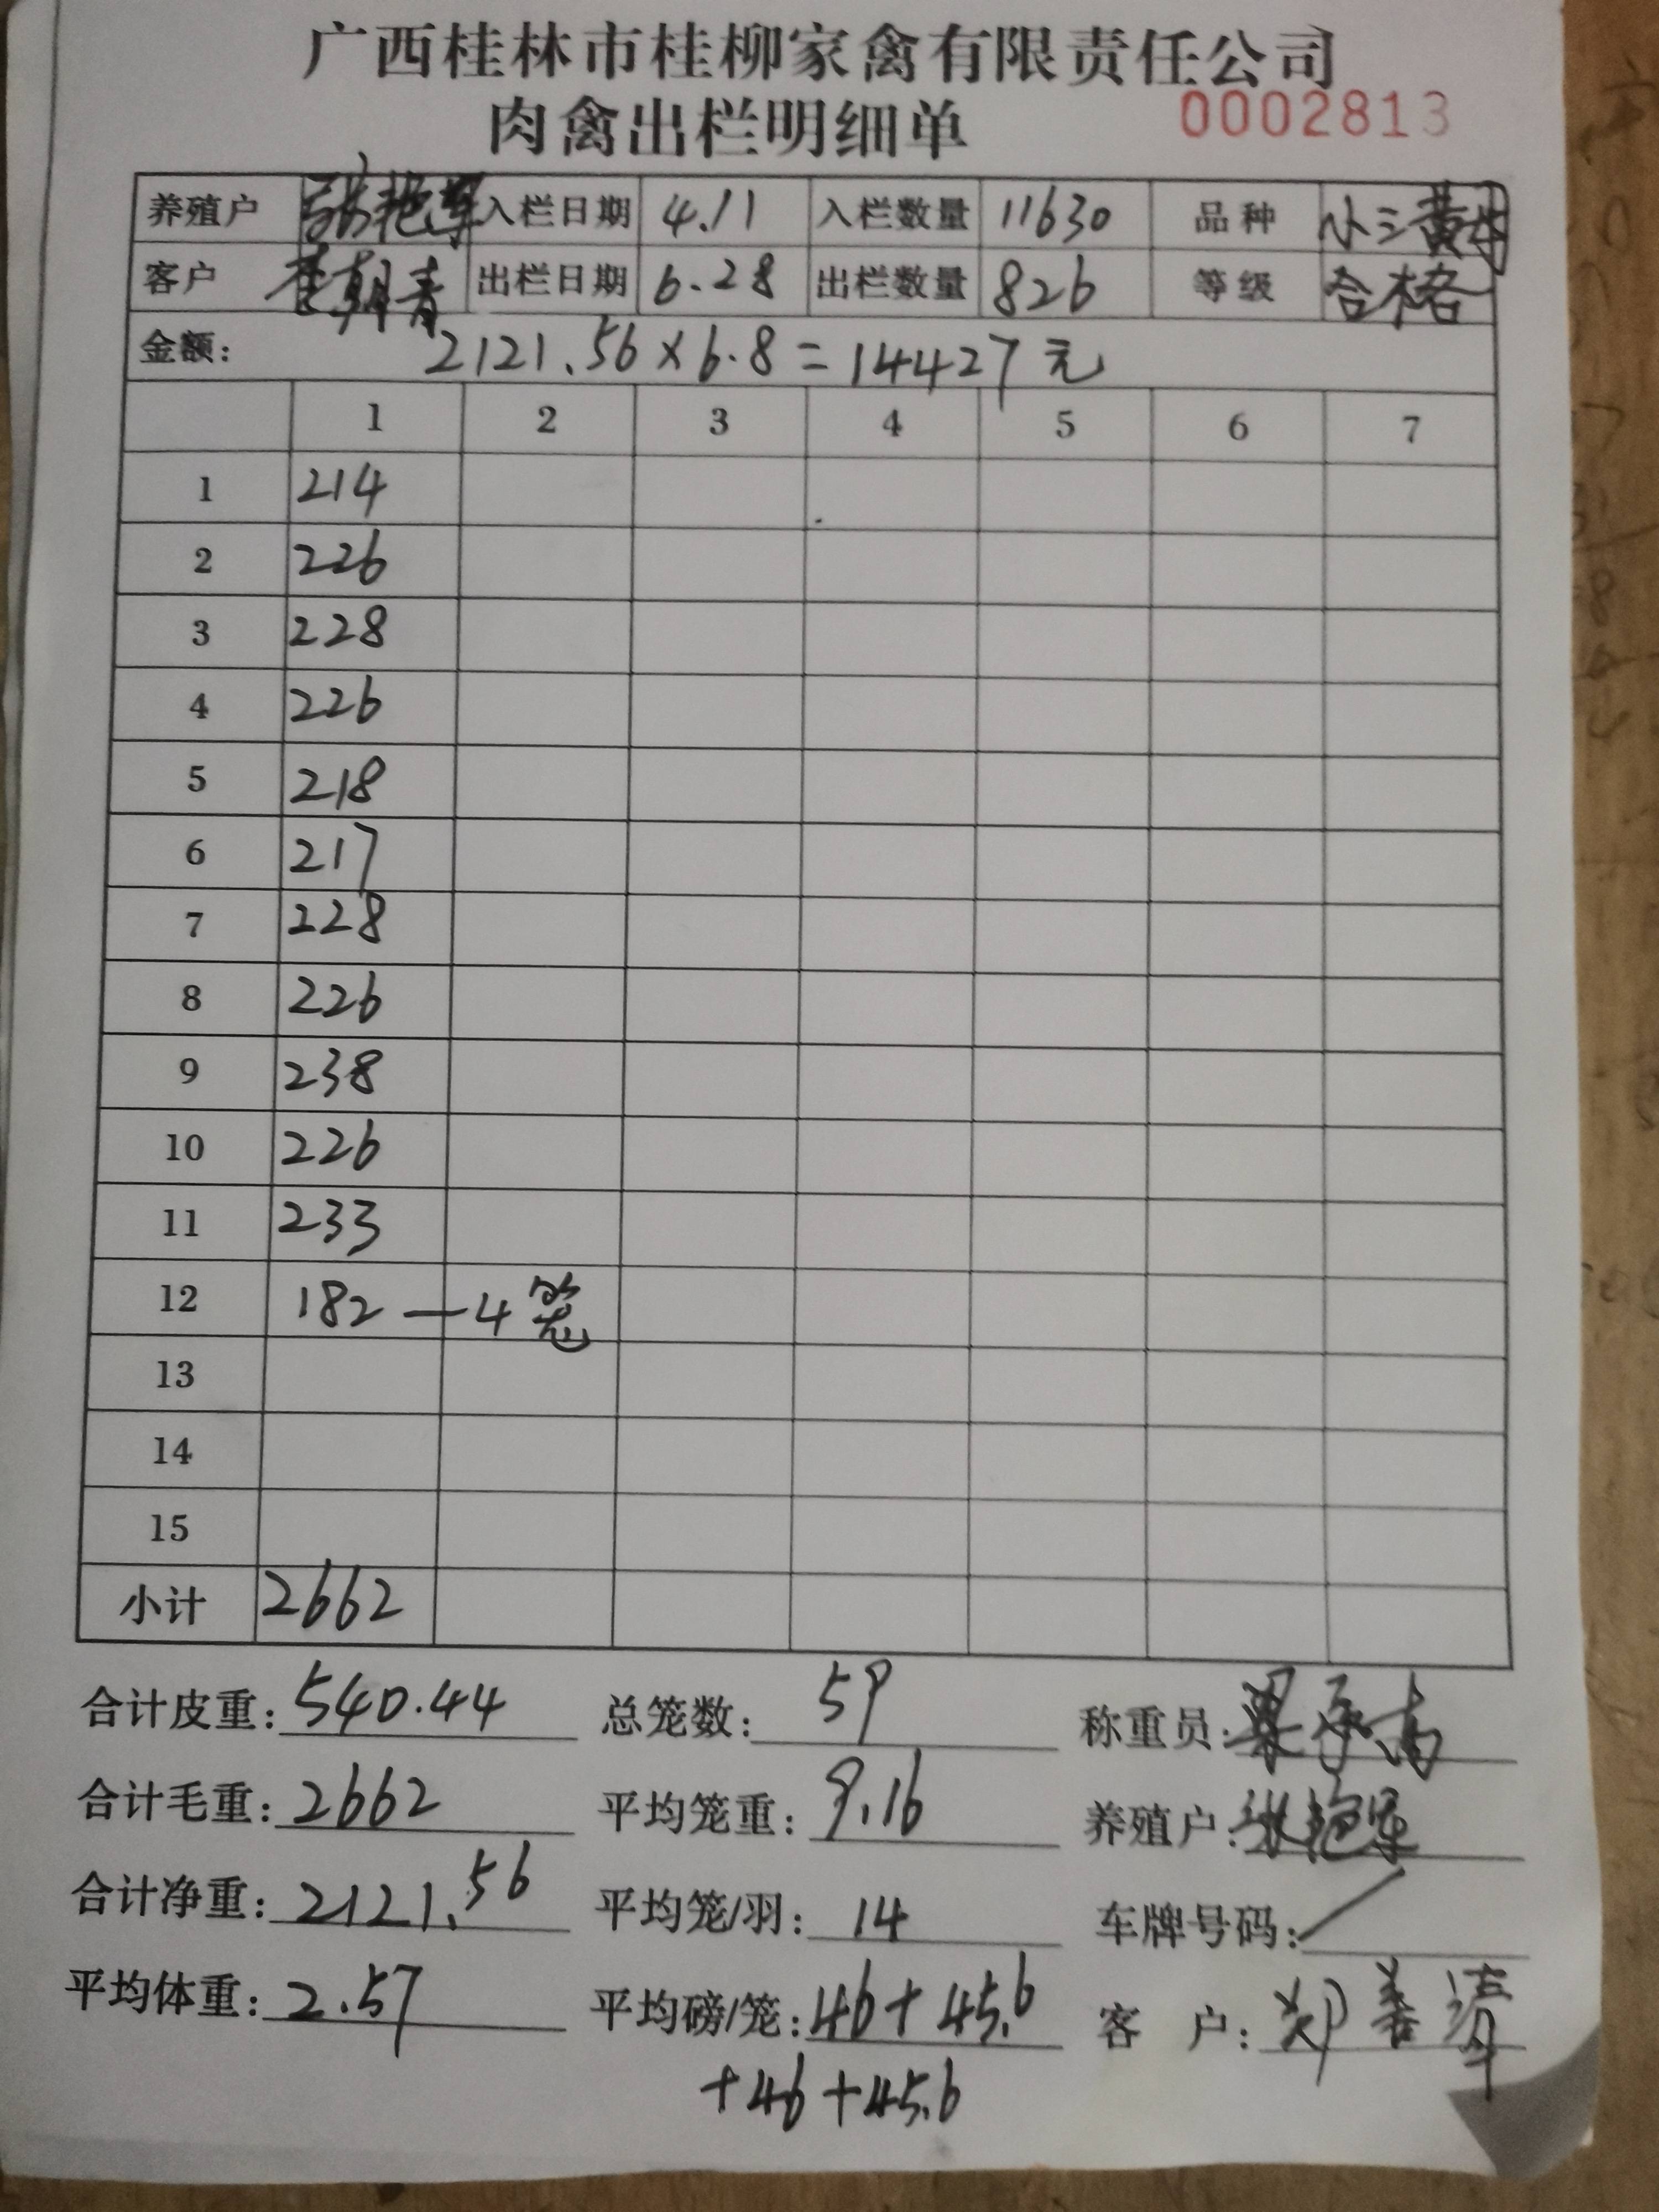 广西桂林市桂柳家禽有限责任公司
肉禽出栏明细单 0002813
养殖户 张艳军 入栏日期 4.11 入栏数量 11630 品种 小三黄
客户 李朝青 出栏日期 6.28 出栏数量 826 等级 合格
金额: 2121.56×6.8=14427元
1 2 3 4 5 6 7
1 214
2 226
3 228
4 226
5 218
6 217
7 228
8 226
9 238
10 226
11 233
12 182—4笼
13
14
15
小计 2662
合计皮重: 540.44 总笼数: 59 称重员:
合计毛重: 2662 平均笼重: 9.16 养殖户: 张艳军
合计净重: 2121.56 平均笼/羽: 14 车牌号码: /
平均体重: 2.57 平均磅/笼: 46+45.6 客 户: 郑善清
+46+45.6